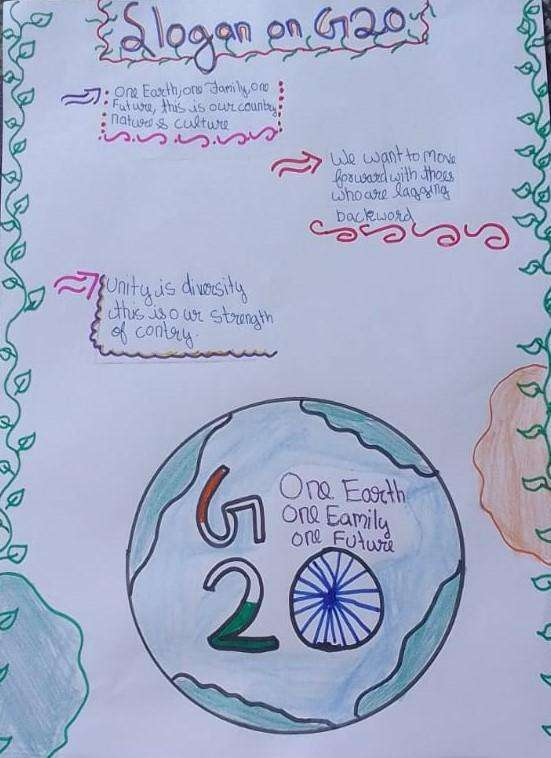 Slogan on G20
One Earth, one family, one
Future, this is our country
nature & culture
We want to move
forward with thoes
who are lagging
backword
Unity is diversity
this is our strength
of contry.
G
20
One Earth
One Eamily
one Future